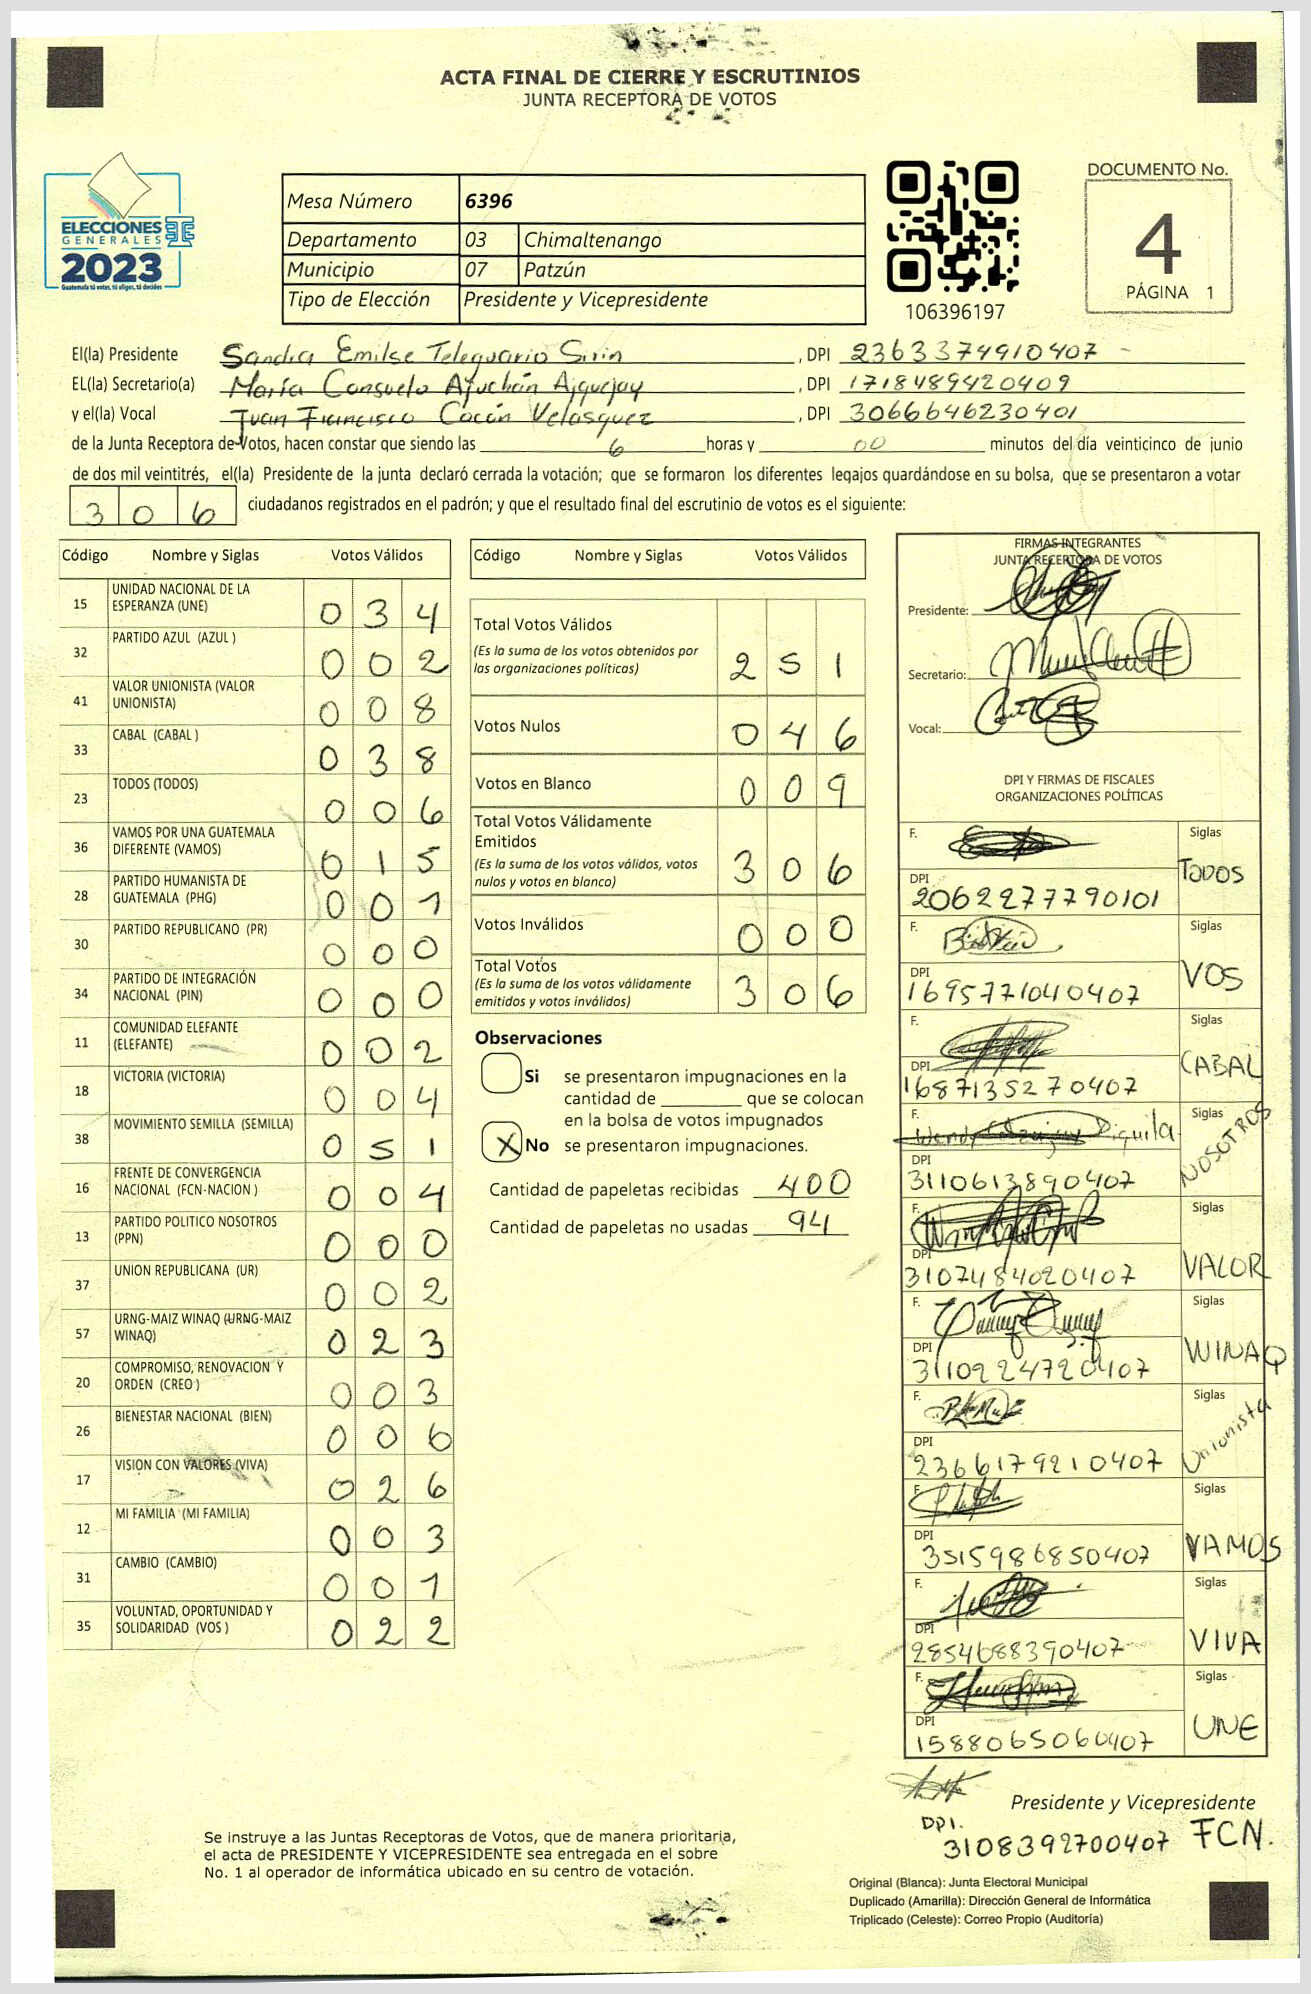 ACTA FINAL DE CIERRE Y ESCRUTINIOS
JUNTA RECEPTORA DE VOTOS
ELECCIONES
GENERALES
2023
Guatemala tú votas, tú eliges, tú decides
Mesa Número 6396
Departamento 03 Chimaltenango
Municipio 07 Patzún
Tipo de Elección Presidente y Vicepresidente
106396197
DOCUMENTO No.
4
PÁGINA 1
El(la) Presidente Sandra Emilse Teleguario Sirin, DPI 2363374910407
EL(la) Secretario(a) María Consuelo Ajuchán Ajquejay, DPI 1718489420409
y el(la) Vocal Juan Francisco Cocón Velasquez, DPI 3066646230401
de la Junta Receptora de Votos, hacen constar que siendo las 6 horas y 00 minutos del día veinticinco de junio
de dos mil veintitrés, el(la) Presidente de la junta declaró cerrada la votación; que se formaron los diferentes legajos guardándose en su bolsa, que se presentaron a votar
306 ciudadanos registrados en el padrón; y que el resultado final del escrutinio de votos es el siguiente:
Código Nombre y Siglas Votos Válidos
15 UNIDAD NACIONAL DE LA ESPERANZA (UNE) 034
32 PARTIDO AZUL (AZUL ) 002
41 VALOR UNIONISTA (VALOR UNIONISTA) 008
33 CABAL (CABAL ) 038
23 TODOS (TODOS) 006
36 VAMOS POR UNA GUATEMALA DIFERENTE (VAMOS) 015
28 PARTIDO HUMANISTA DE GUATEMALA (PHG) 001
30 PARTIDO REPUBLICANO (PR) 000
34 PARTIDO DE INTEGRACIÓN NACIONAL (PIN) 000
11 COMUNIDAD ELEFANTE (ELEFANTE) 002
18 VICTORIA (VICTORIA) 004
38 MOVIMIENTO SEMILLA (SEMILLA) 051
16 FRENTE DE CONVERGENCIA NACIONAL (FCN-NACION ) 004
13 PARTIDO POLITICO NOSOTROS (PPN) 000
37 UNION REPUBLICANA (UR) 002
57 URNG-MAIZ WINAQ (URNG-MAIZ WINAQ) 023
20 COMPROMISO, RENOVACION Y ORDEN (CREO ) 003
26 BIENESTAR NACIONAL (BIEN) 006
17 VISION CON VALORES (VIVA) 026
12 MI FAMILIA (MI FAMILIA) 003
31 CAMBIO (CAMBIO) 001
35 VOLUNTAD, OPORTUNIDAD Y SOLIDARIDAD (VOS ) 022
Código Nombre y Siglas Votos Válidos
Total Votos Válidos
(Es la suma de los votos obtenidos por
las organizaciones políticas) 251
Votos Nulos 046
Votos en Blanco 009
Total Votos Válidamente
Emitidos
(Es la suma de los votos válidos, votos
nulos y votos en blanco) 306
Votos Inválidos 000
Total Votos
(Es la suma de los votos válidamente
emitidos y votos inválidos) 306
Observaciones
Si se presentaron impugnaciones en la
cantidad de ________ que se colocan
en la bolsa de votos impugnados
X No se presentaron impugnaciones.
Cantidad de papeletas recibidas 400
Cantidad de papeletas no usadas 94
FIRMAS INTEGRANTES
JUNTA RECEPTORA DE VOTOS
Presidente:
Secretario:
Vocal:
DPI Y FIRMAS DE FISCALES
ORGANIZACIONES POLÍTICAS
F. Siglas
TODOS
DPI
2062277790101
F. Siglas
VOS
DPI
1695771040407
F. Siglas
CABAL
DPI
1687135270407
F. Siglas
NOSOTROS
DPI
3110613890407
F. Siglas
VALOR
DPI
3107484020407
F. Siglas
WINAQ
DPI
3110224720407
F. Siglas
Unionista
DPI
2366179210407
F. Siglas
VAMOS
DPI
3515986850407
F. Siglas
VIVA
DPI
2854688390407
F. Siglas
UNE
DPI
1588065060407
Presidente y Vicepresidente
DPI.
3108392700407 FCN.
Se instruye a las Juntas Receptoras de Votos, que de manera prioritaria,
el acta de PRESIDENTE Y VICEPRESIDENTE sea entregada en el sobre
No. 1 al operador de informática ubicado en su centro de votación.
Original (Blanca): Junta Electoral Municipal
Duplicado (Amarilla): Dirección General de Informática
Triplicado (Celeste): Correo Propio (Auditoría)